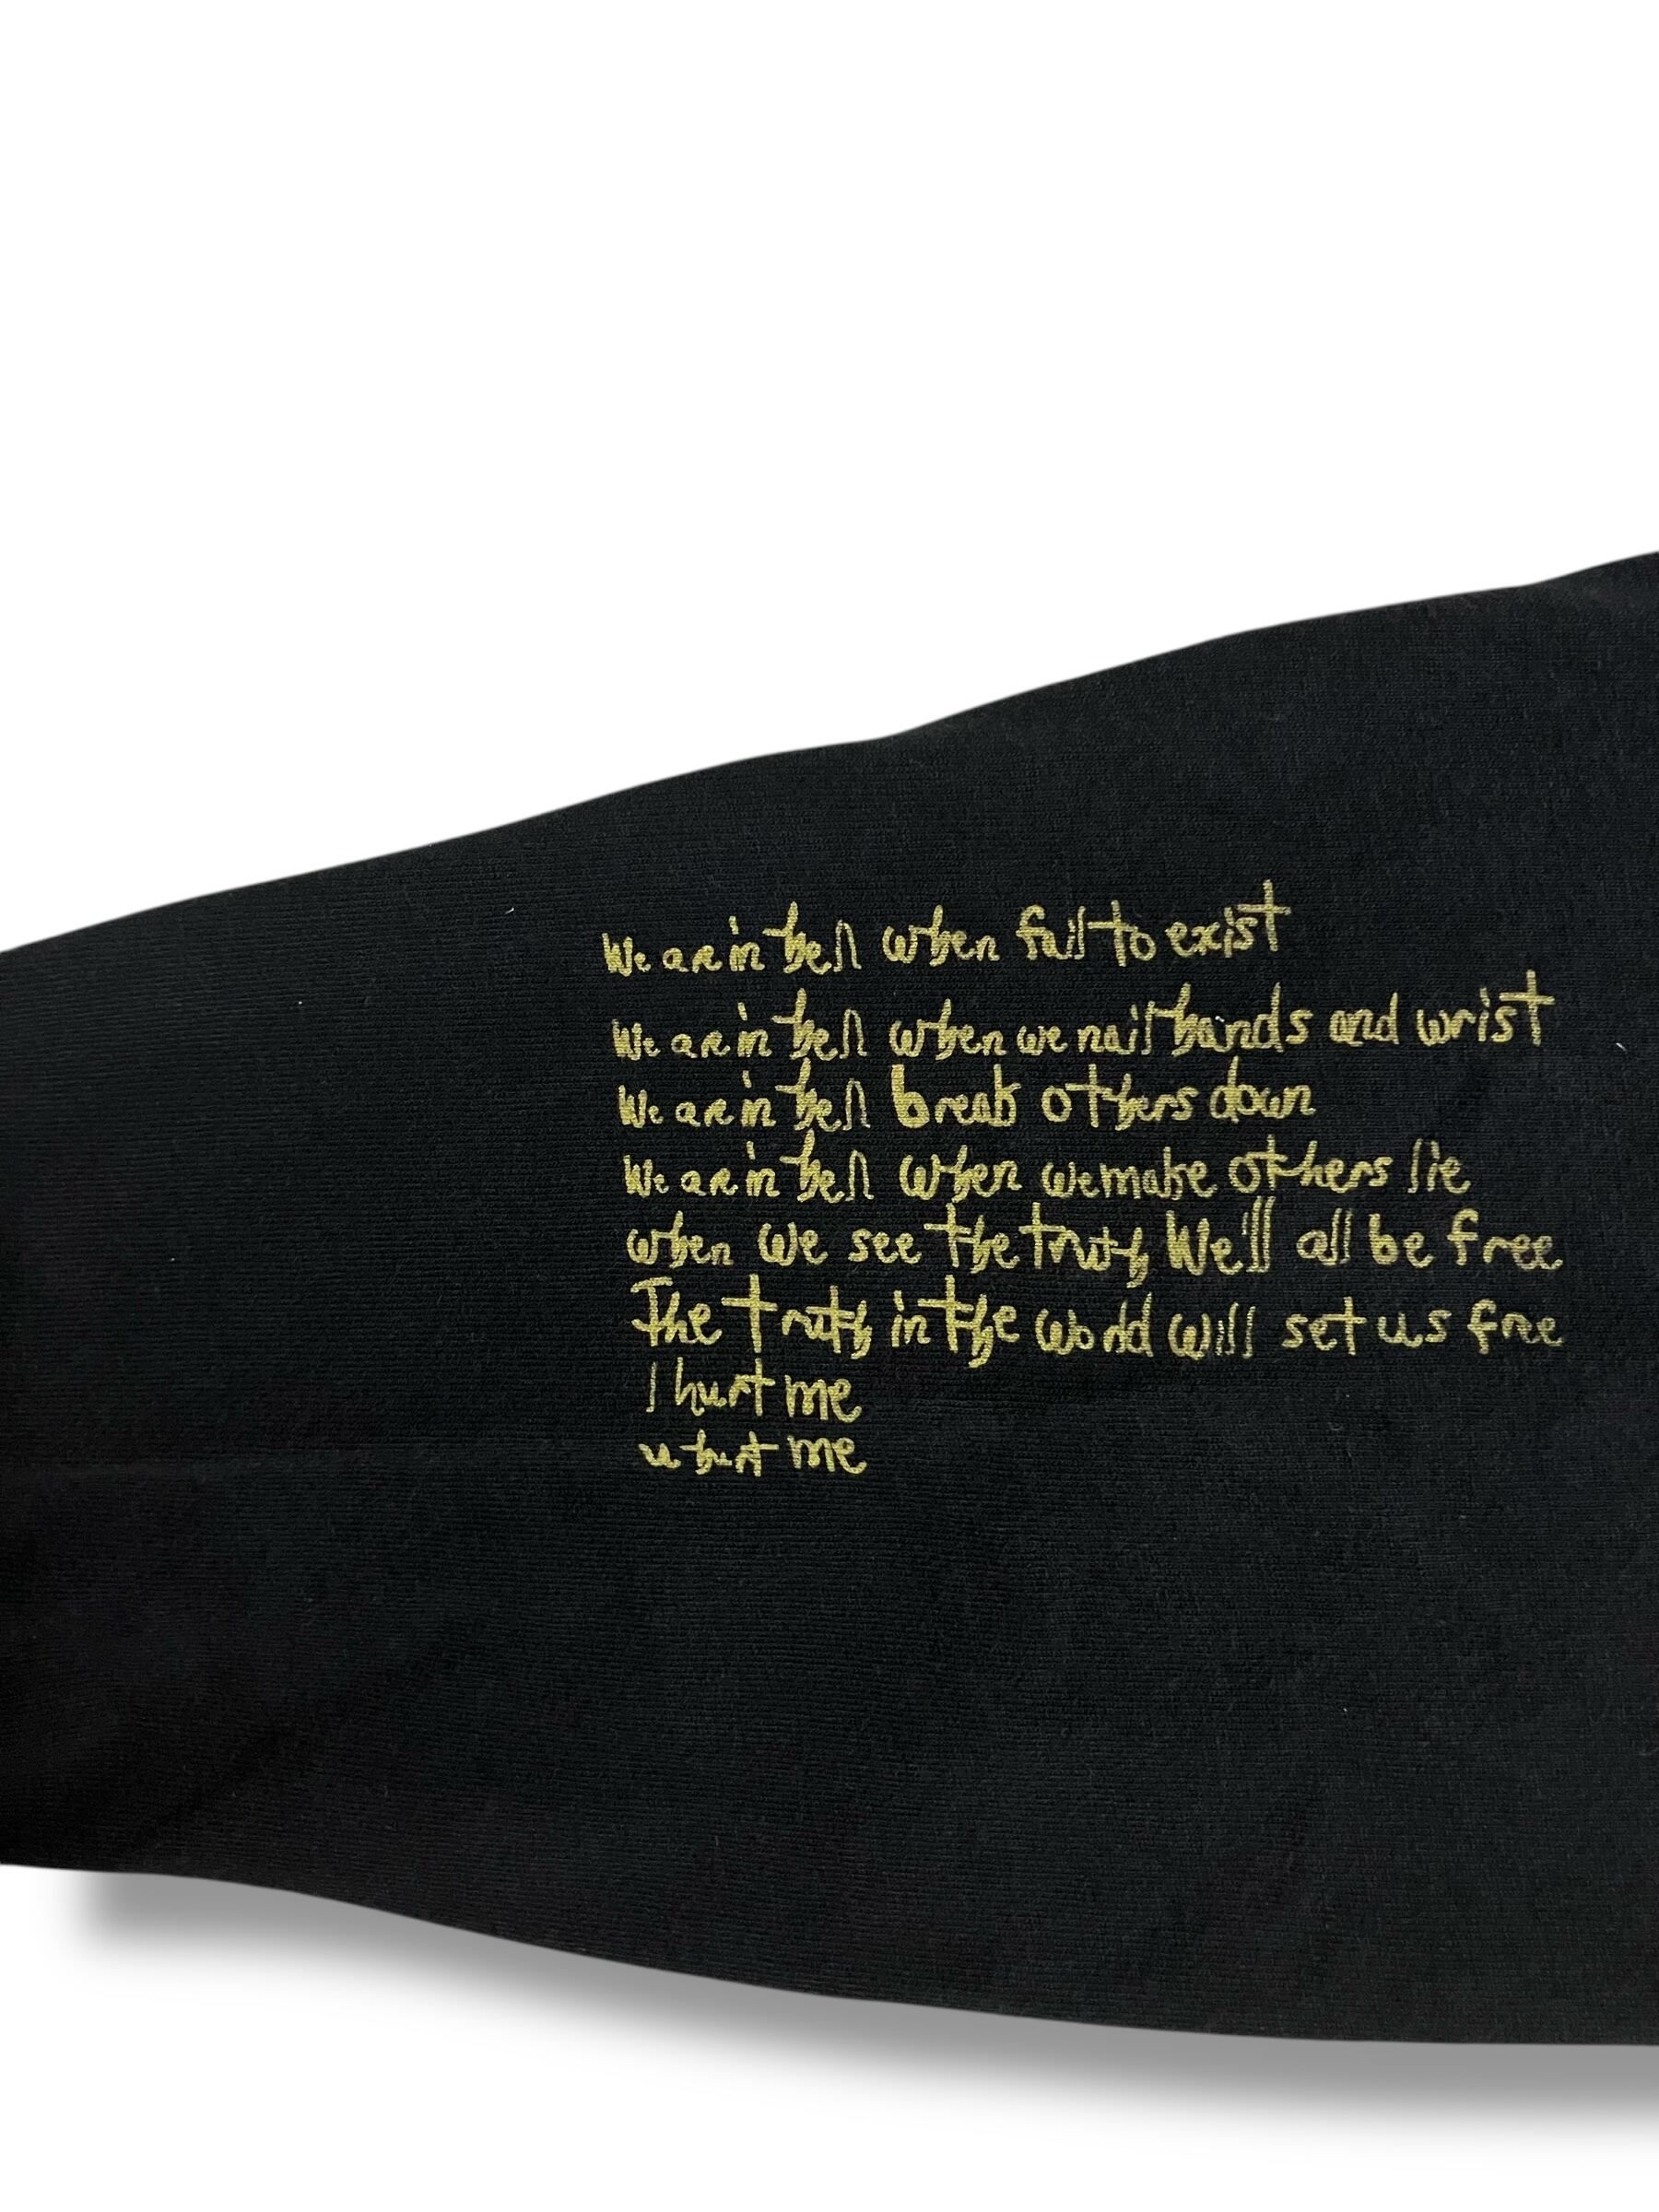 We are in hell when fail to exist
We are in hell when we nail hands and wrist
We are in hell break others down
We are in hell when we make others lie
when we see the truth We'll all be free
The truth in the world will set us free
I hurt me
u hurt me